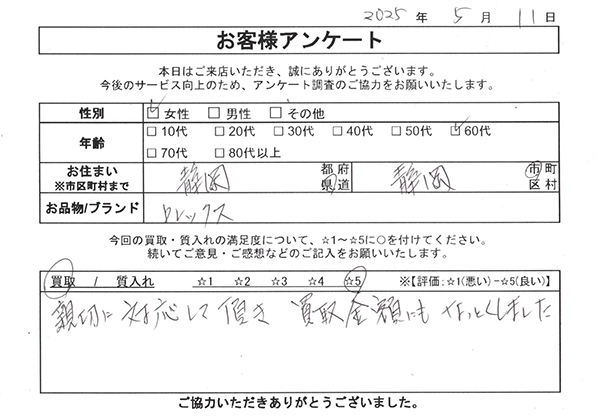 2025 年 5 月 11 日
お客様アンケート
本日はご来店いただき、誠にありがとうございます。
今後のサービス向上のため、アンケート調査のご協力をお願いいたします。
性別 ☑ 女性 □ 男性 □ その他
年齢 □ 10代 □ 20代 □ 30代 □ 40代 □ 50代 ☑ 60代
□ 70代 □ 80代以上
お住まい ※市区町村まで 静岡 都 府 県 道 静岡 市 町 区 村
お品物/ブランド ロレックス
今回の買取・質入れの満足度について、☆1～☆5に○を付けてください。
続いてご意見・ご感想などのご記入をお願いいたします。
買取 / 質入れ ☆1 ☆2 ☆3 ☆4 ☆5 ※【評価：☆1(悪い)－☆5(良い)】
親切に対応して頂き 買取金額にもなっとくしました
ご協力いただきありがとうございました。